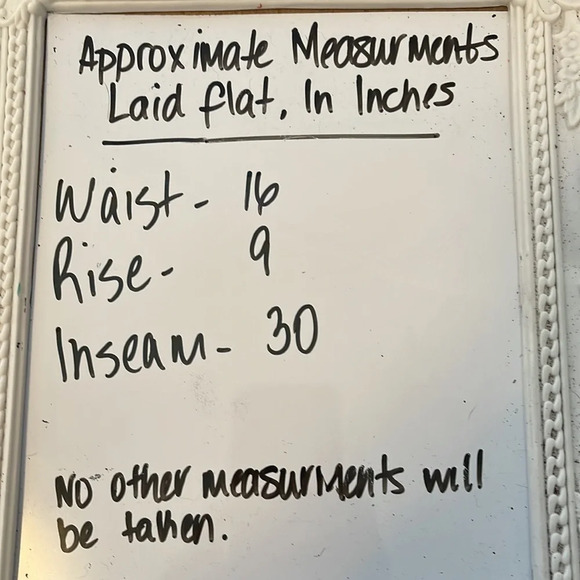 Approximate Measurments
Laid flat, In Inches
Waist - 16
Rise - 9
Inseam - 30
No other measurments will
be taken.